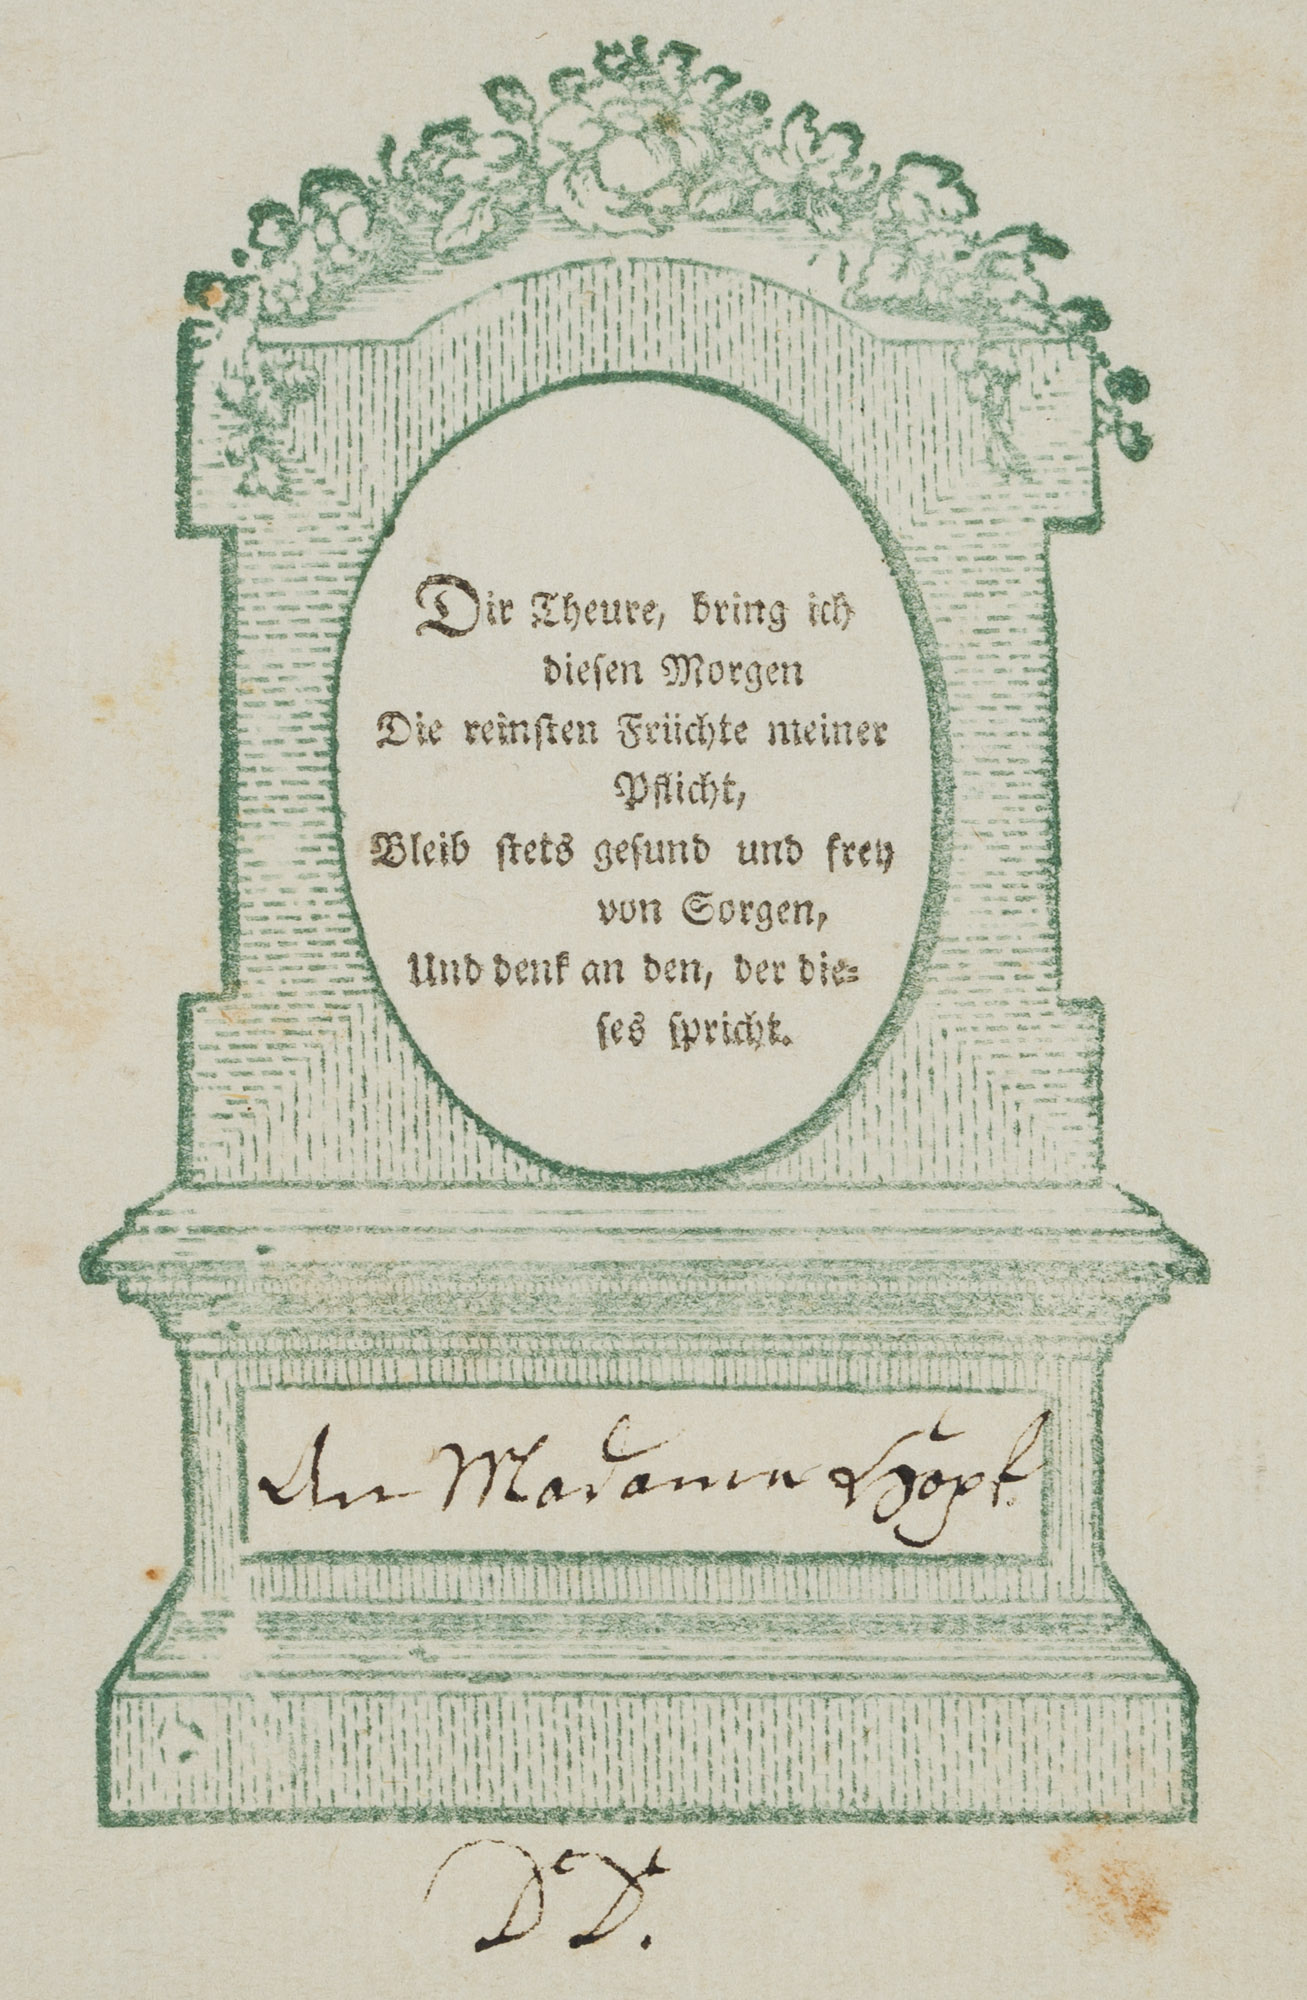 Dir Theure, bring ich
diesen Morgen
Die reinsten Früchte meiner
Pflicht,
Bleib stets gesund und frey
von Sorgen,
Und denk an den, der die-
ses spricht.
An Madame Hopf.
D. D.